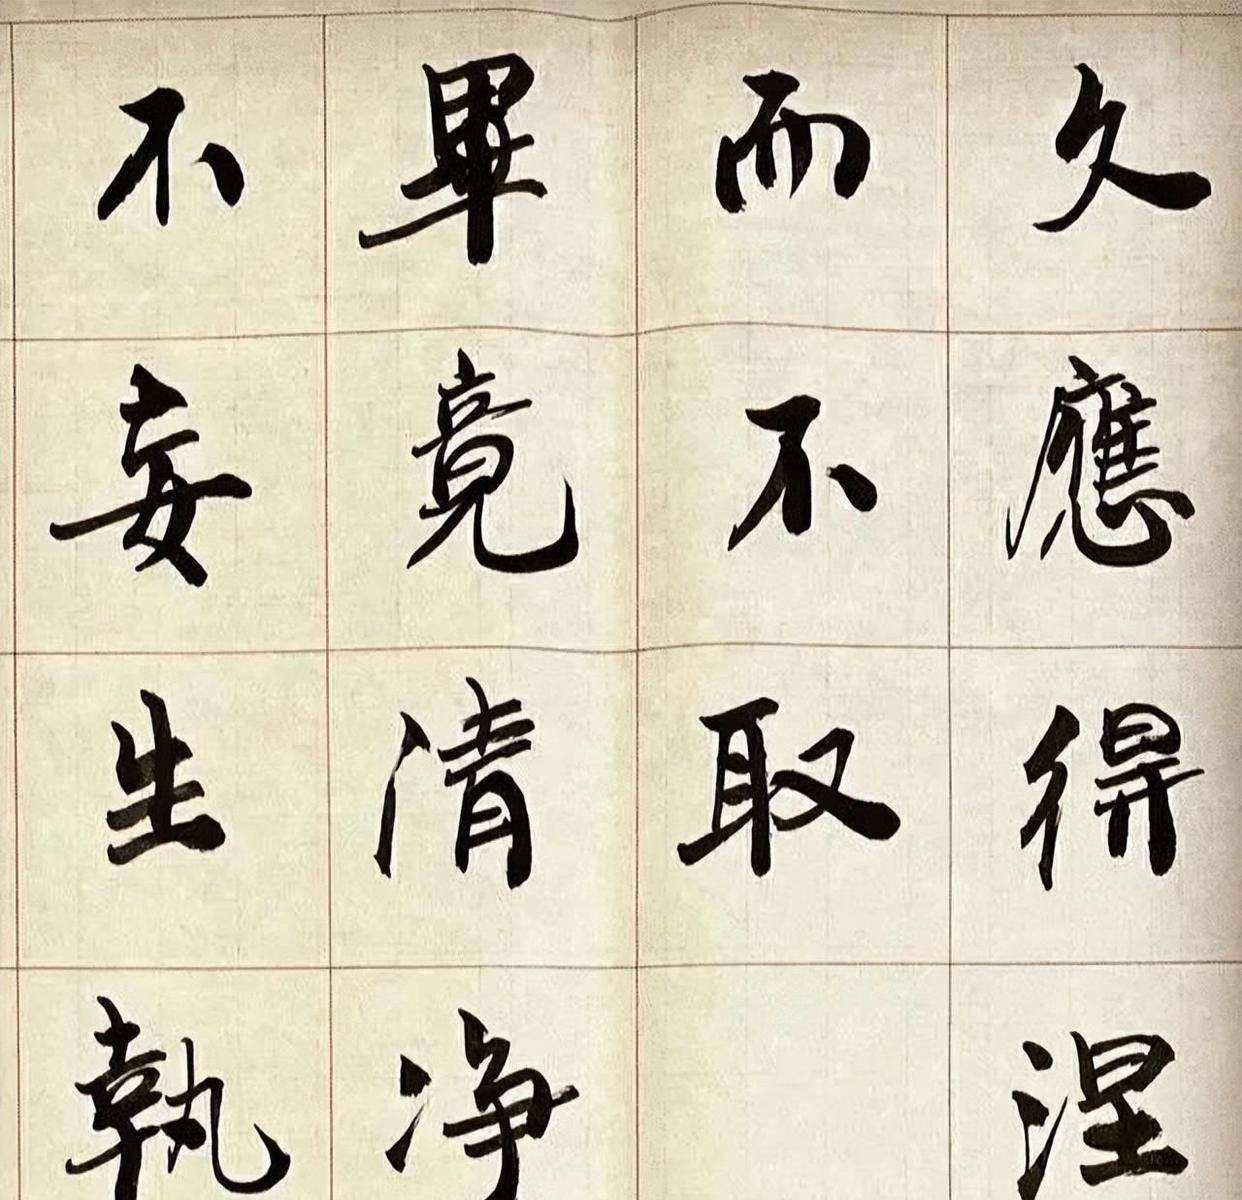 久應得涅
而不取
畢竟清净
不妄生執